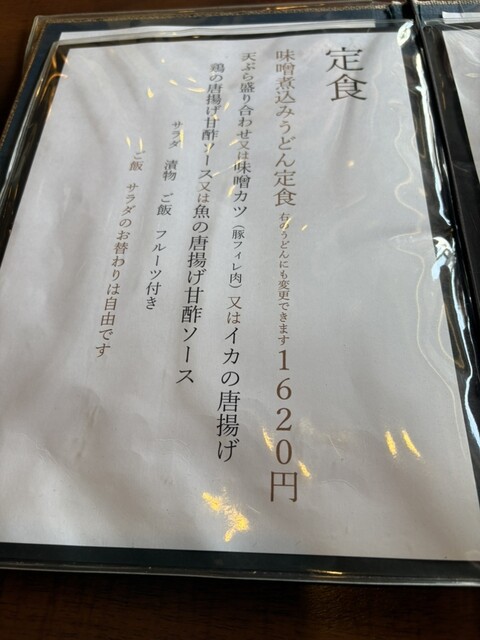 定食
味噌煮込みうどん定食 右のうどんにも変更できます 1620円
天ぷら盛り合わせ又は味噌カツ(豚フィレ肉)又はイカの唐揚げ
鶏の唐揚げ甘酢ソース又は魚の唐揚げ甘酢ソース
サラダ 漬物 ご飯 フルーツ付き
ご飯 サラダのお替わりは自由です